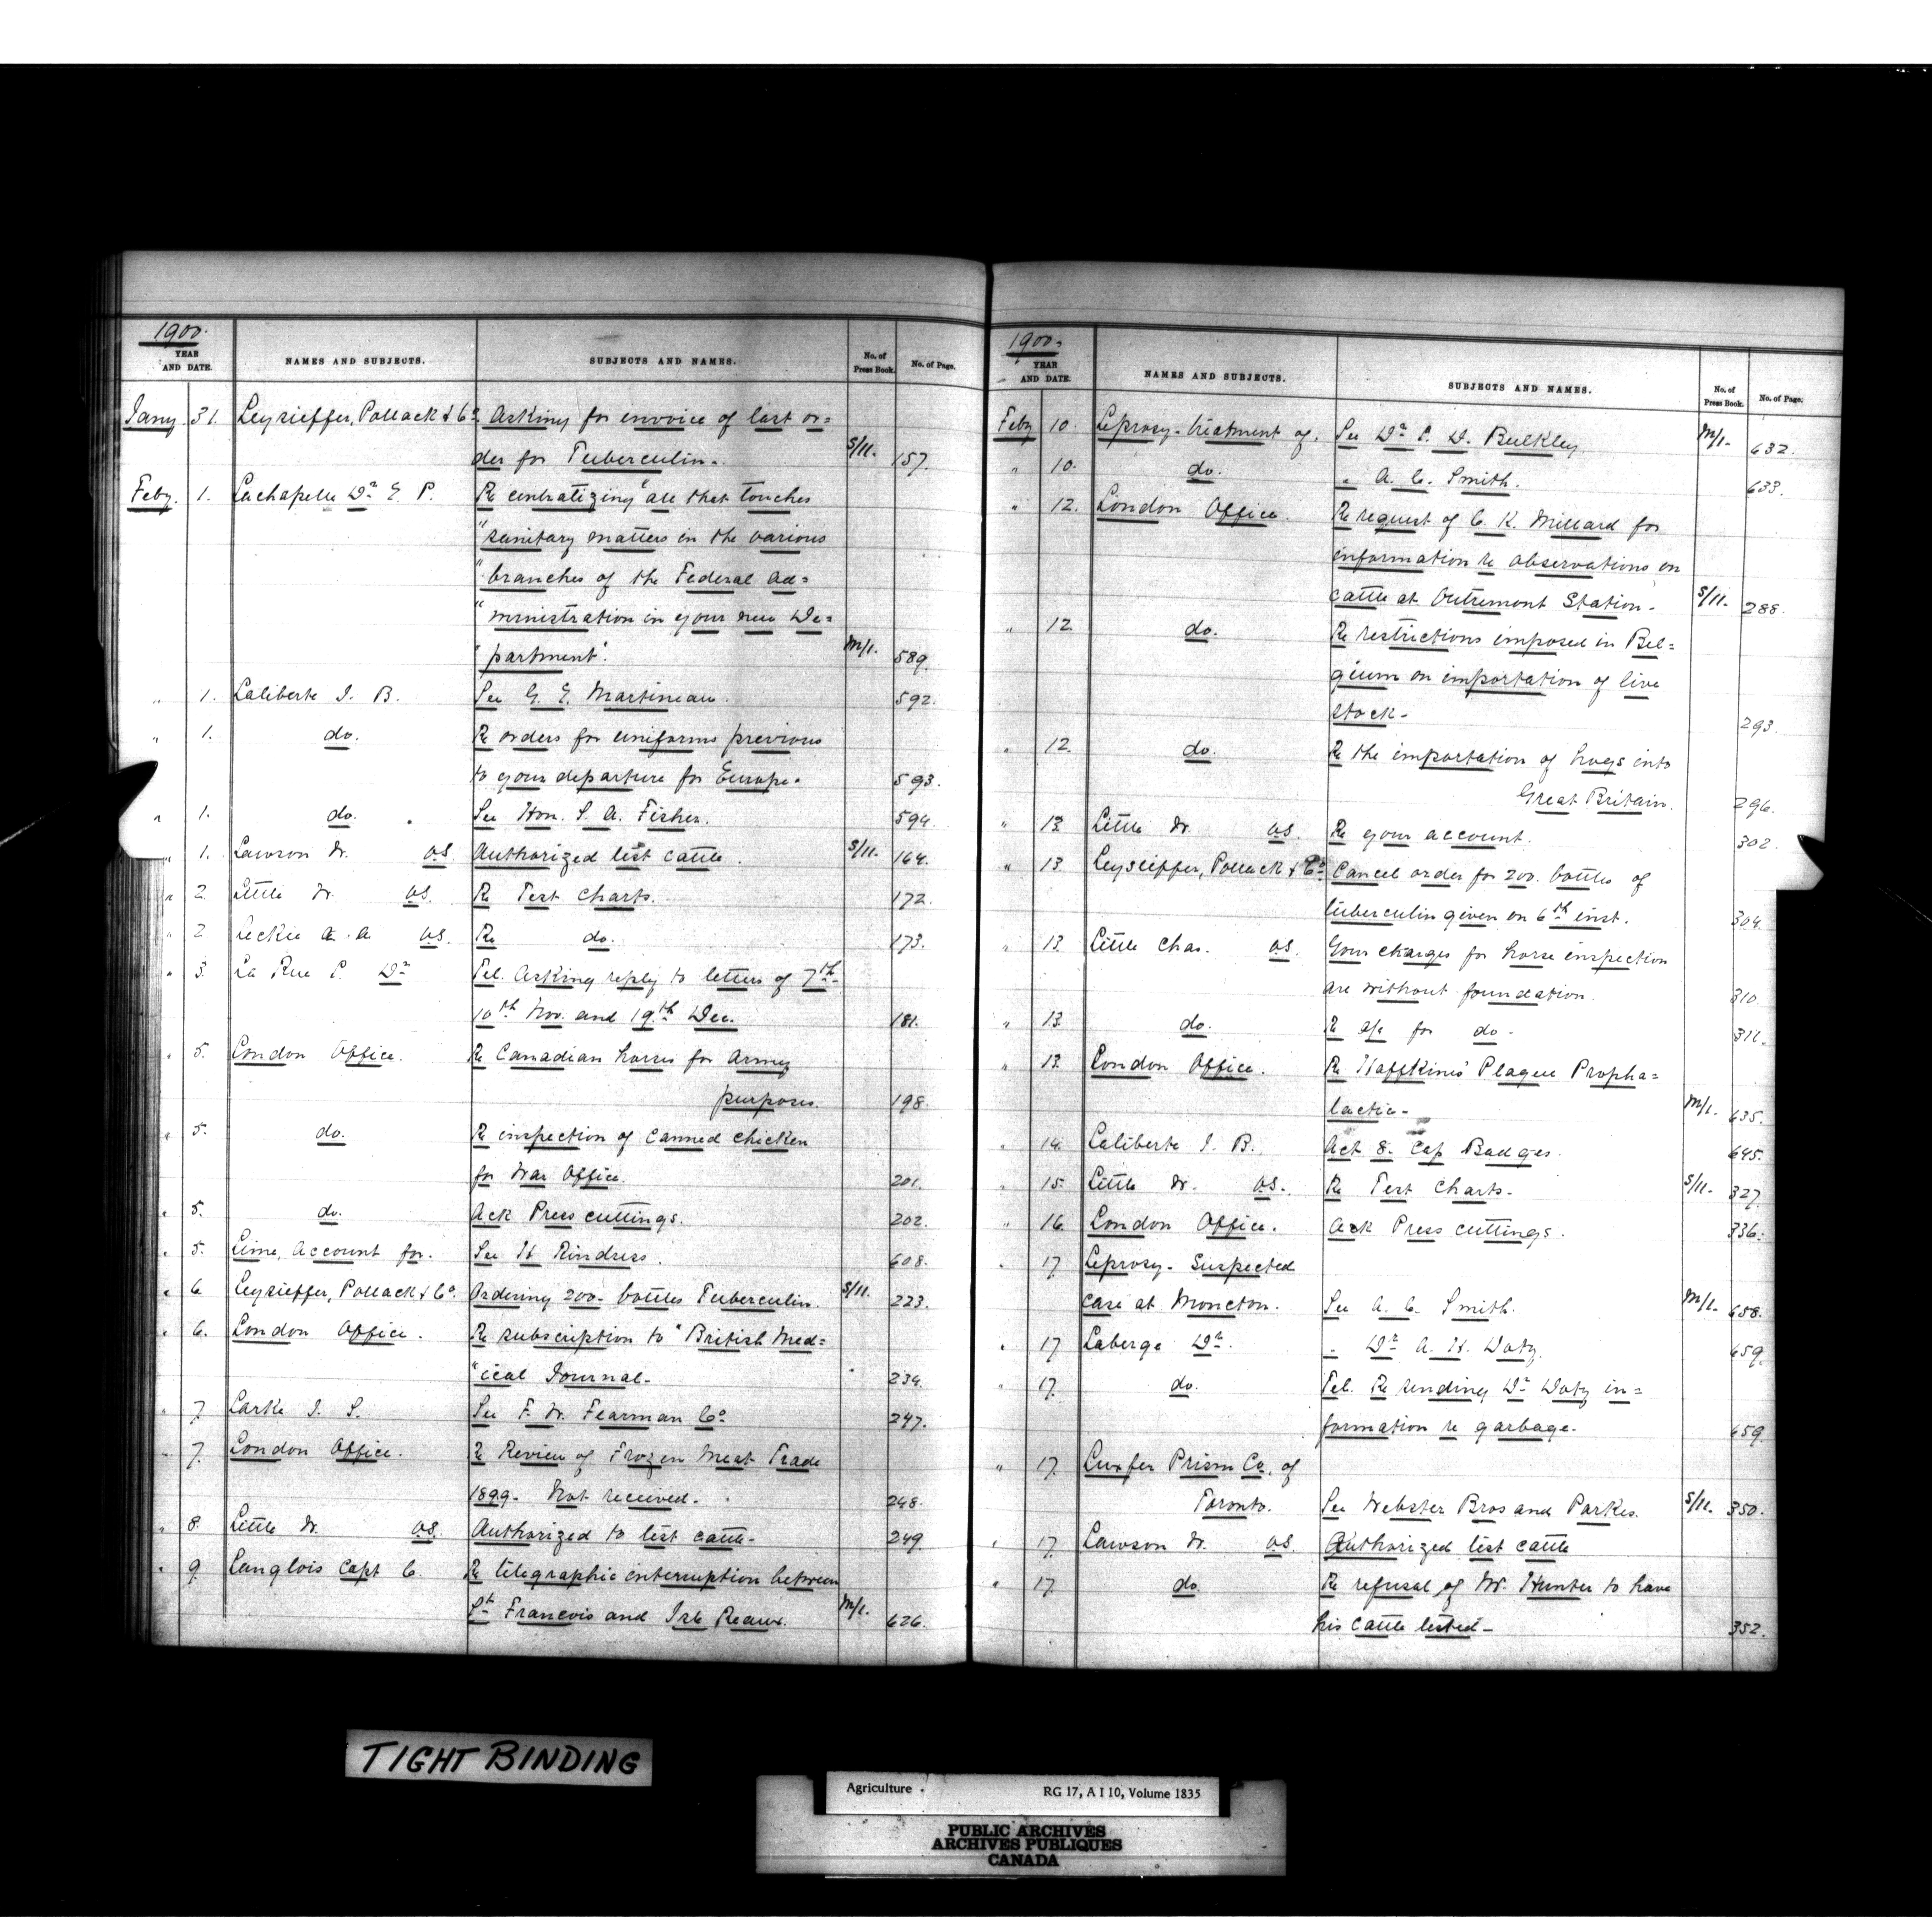 1900.
YEAR AND DATE. NAMES AND SUBJECTS. SUBJECTS AND NAMES. No. of Press Book. No. of Page.
Jany. 31. Leysieffer, Pollack & Co. Asking for invoice of last or=
der for Tuberculin. S/11. 157.
Feby. 1. Lachapelle Dr. E. P. Re centralizing "all that touches
"sanitary matters in the various
"branches of the Federal Ad=
"ministration in your new De=
"partment". M/1. 589.
" 1. Laliberte J. B. See G. E. Martineau. 592.
" 1. do. Re orders for uniforms previous
to your departure for Europe. 593.
" 1. do. See Hon. S. A. Fisher. 594.
" 1. Lawson W. VS. Authorized test cattle. S/11. 164.
" 2. Little W. VS. Re Test Charts. 172.
" 2. Leckie A. A. VS. Re do. 173.
" 3. La Rue P. Dr. Tel. Asking reply to letters of 7th
10th Nov. and 19th Dec. 181.
" 5. London Office. Re Canadian horses for Army
purposes. 198.
" 5. do. Re inspection of Canned Chicken
for War Office. 201.
" 5. do. Ack Press cuttings. 202.
" 5. Lime, Account for. See H Rindress. 608.
" 6. Leysieffer, Pollack & Co. Ordering 200 bottles Tuberculin. S/11. 223.
" 6. London Office. Re subscription to "British Med=
"ical Journal. 234.
" 7. Larke J. S. See F. W. Fearman Co. 247.
" 7. London Office. Re Review of Frozen Meat Trade
1899. Not received. 248.
" 8. Little W. VS. Authorized to test cattle. 249
" 9. Langlois Capt C. Re telegraphic interruption between
St Francois and Isle Reaux. M/1. 626.
1900.
YEAR AND DATE. NAMES AND SUBJECTS. SUBJECTS AND NAMES. No. of Press Book. No. of Page.
Feby 10. Leprosy-treatment of. See Dr. L. D. Bulkley. M/1. 632.
" 10. do. " A. C. Smith. 633.
" 12. London Office. Re request of C. K. Millard for
information re observations on
cattle at Outremont Station. S/11. 288.
" 12 do. Re restrictions imposed in Bel=
gium on importation of live
stock. 293.
" 12. do. Re the importation of hogs into
Great Britain. 296.
" 13. Little W. VS. Re your account. 302.
" 13. Leysieffer, Pollack & Co. Cancel order for 200 bottles of
tuberculin given on 6th inst. 304
" 13. Little Chas. VS. Your charges for horse inspection
are without foundation. 310
" 13. do. Re a/c for do. 311.
" 13. London Office. Re Haffkines' Plague Propha=
lactic. M/1. 635.
" 14. Laliberte J. B. Act 8. Cap Badges. 645.
" 15. Little W. VS. Re Test Charts. S/11. 327
" 16. London Office. Ack Press cuttings. 336.
" 17 Leprosy. Suspected
case at Moncton. See A. C. Smith. M/1. 658.
" 17 Laberge Dr. " Dr. A. H. Doty. 659.
" 17. do. Tel. Re sending Dr. Doty in=
formation re garbage. 659
" 17. Luxfer Prism Co, of
Toronto. See Webster Bros and Parkes. S/11. 350.
" 17. Lawson W. VS. Authorized test cattle
" 17. do. Re refusal of W. Hunter to have
his cattle tested. 352.
TIGHT BINDING
Agriculture. RG 17, A I 10, Volume 1835
PUBLIC ARCHIVES
ARCHIVES PUBLIQUES
CANADA